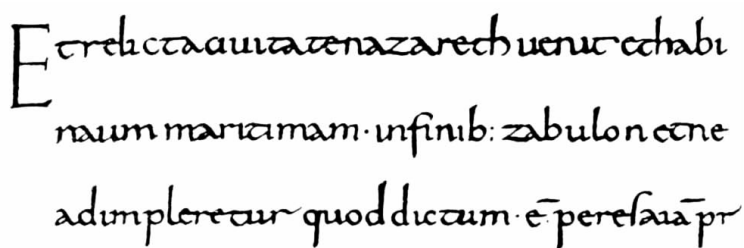 Et relicta ciuitate nazareth uenit et habi
naum maritimam · in finib: zabulon et ne
adimpleretur quod dictum · ē· per esaiā pr